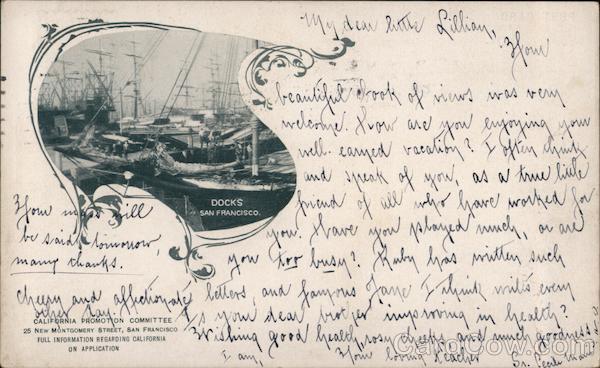 My dear little Lillian,
Your
beautiful book of views was very
welcome. How are you enjoying your
well-earned vacation? I often think
and speak of you, as a true little
friend of all who have worked for
you. Have you played much, or are
you too busy? Ruby has written such
cheery and affectionate letters, and famous Jane I think writes every
other day. Is your dear brother improving in health?
Wishing good health, rosy cheeks and much goodness
I am, Your loving teacher
Sr. Cecile Marie
Your mass will
be said tomorrow,
many thanks.
DOCKS
SAN FRANCISCO.
CALIFORNIA PROMOTION COMMITTEE
25 NEW MONTGOMERY STREET, SAN FRANCISCO
FULL INFORMATION REGARDING CALIFORNIA
ON APPLICATION
CardCow.com